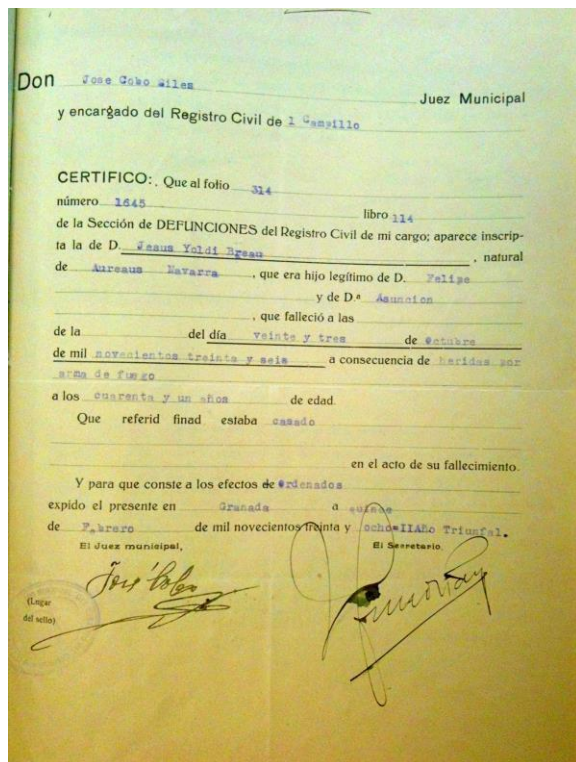 Don Jose Cobo Giles
Juez Municipal
y encargado del Registro Civil de l Campillo
CERTIFICO:. Que al folio 314
número 1645 libro 114
de la Sección de DEFUNCIONES del Registro Civil de mi cargo; aparece inscrip-
ta la de D. Jesus Yoldi Breau, natural
de Aureaus Navarra, que era hijo legítimo de D. Felipe
y de D.ª Asuncion
, que falleció a las
de la del día veinte y tres de Octubre
de mil novecientos treinta y seis a consecuencia de heridas por
arma de fuego
a los cuarenta y un años de edad.
Que referid finad estaba casado
en el acto de su fallecimiento.
Y para que conste a los efectos de Ordenados
expido el presente en Granada a quince
de Febrero de mil novecientos treinta y ocho=IIAño Triunfal.
El Juez municipal, El Secretario.
José Cobo
(Lugar
del sello)